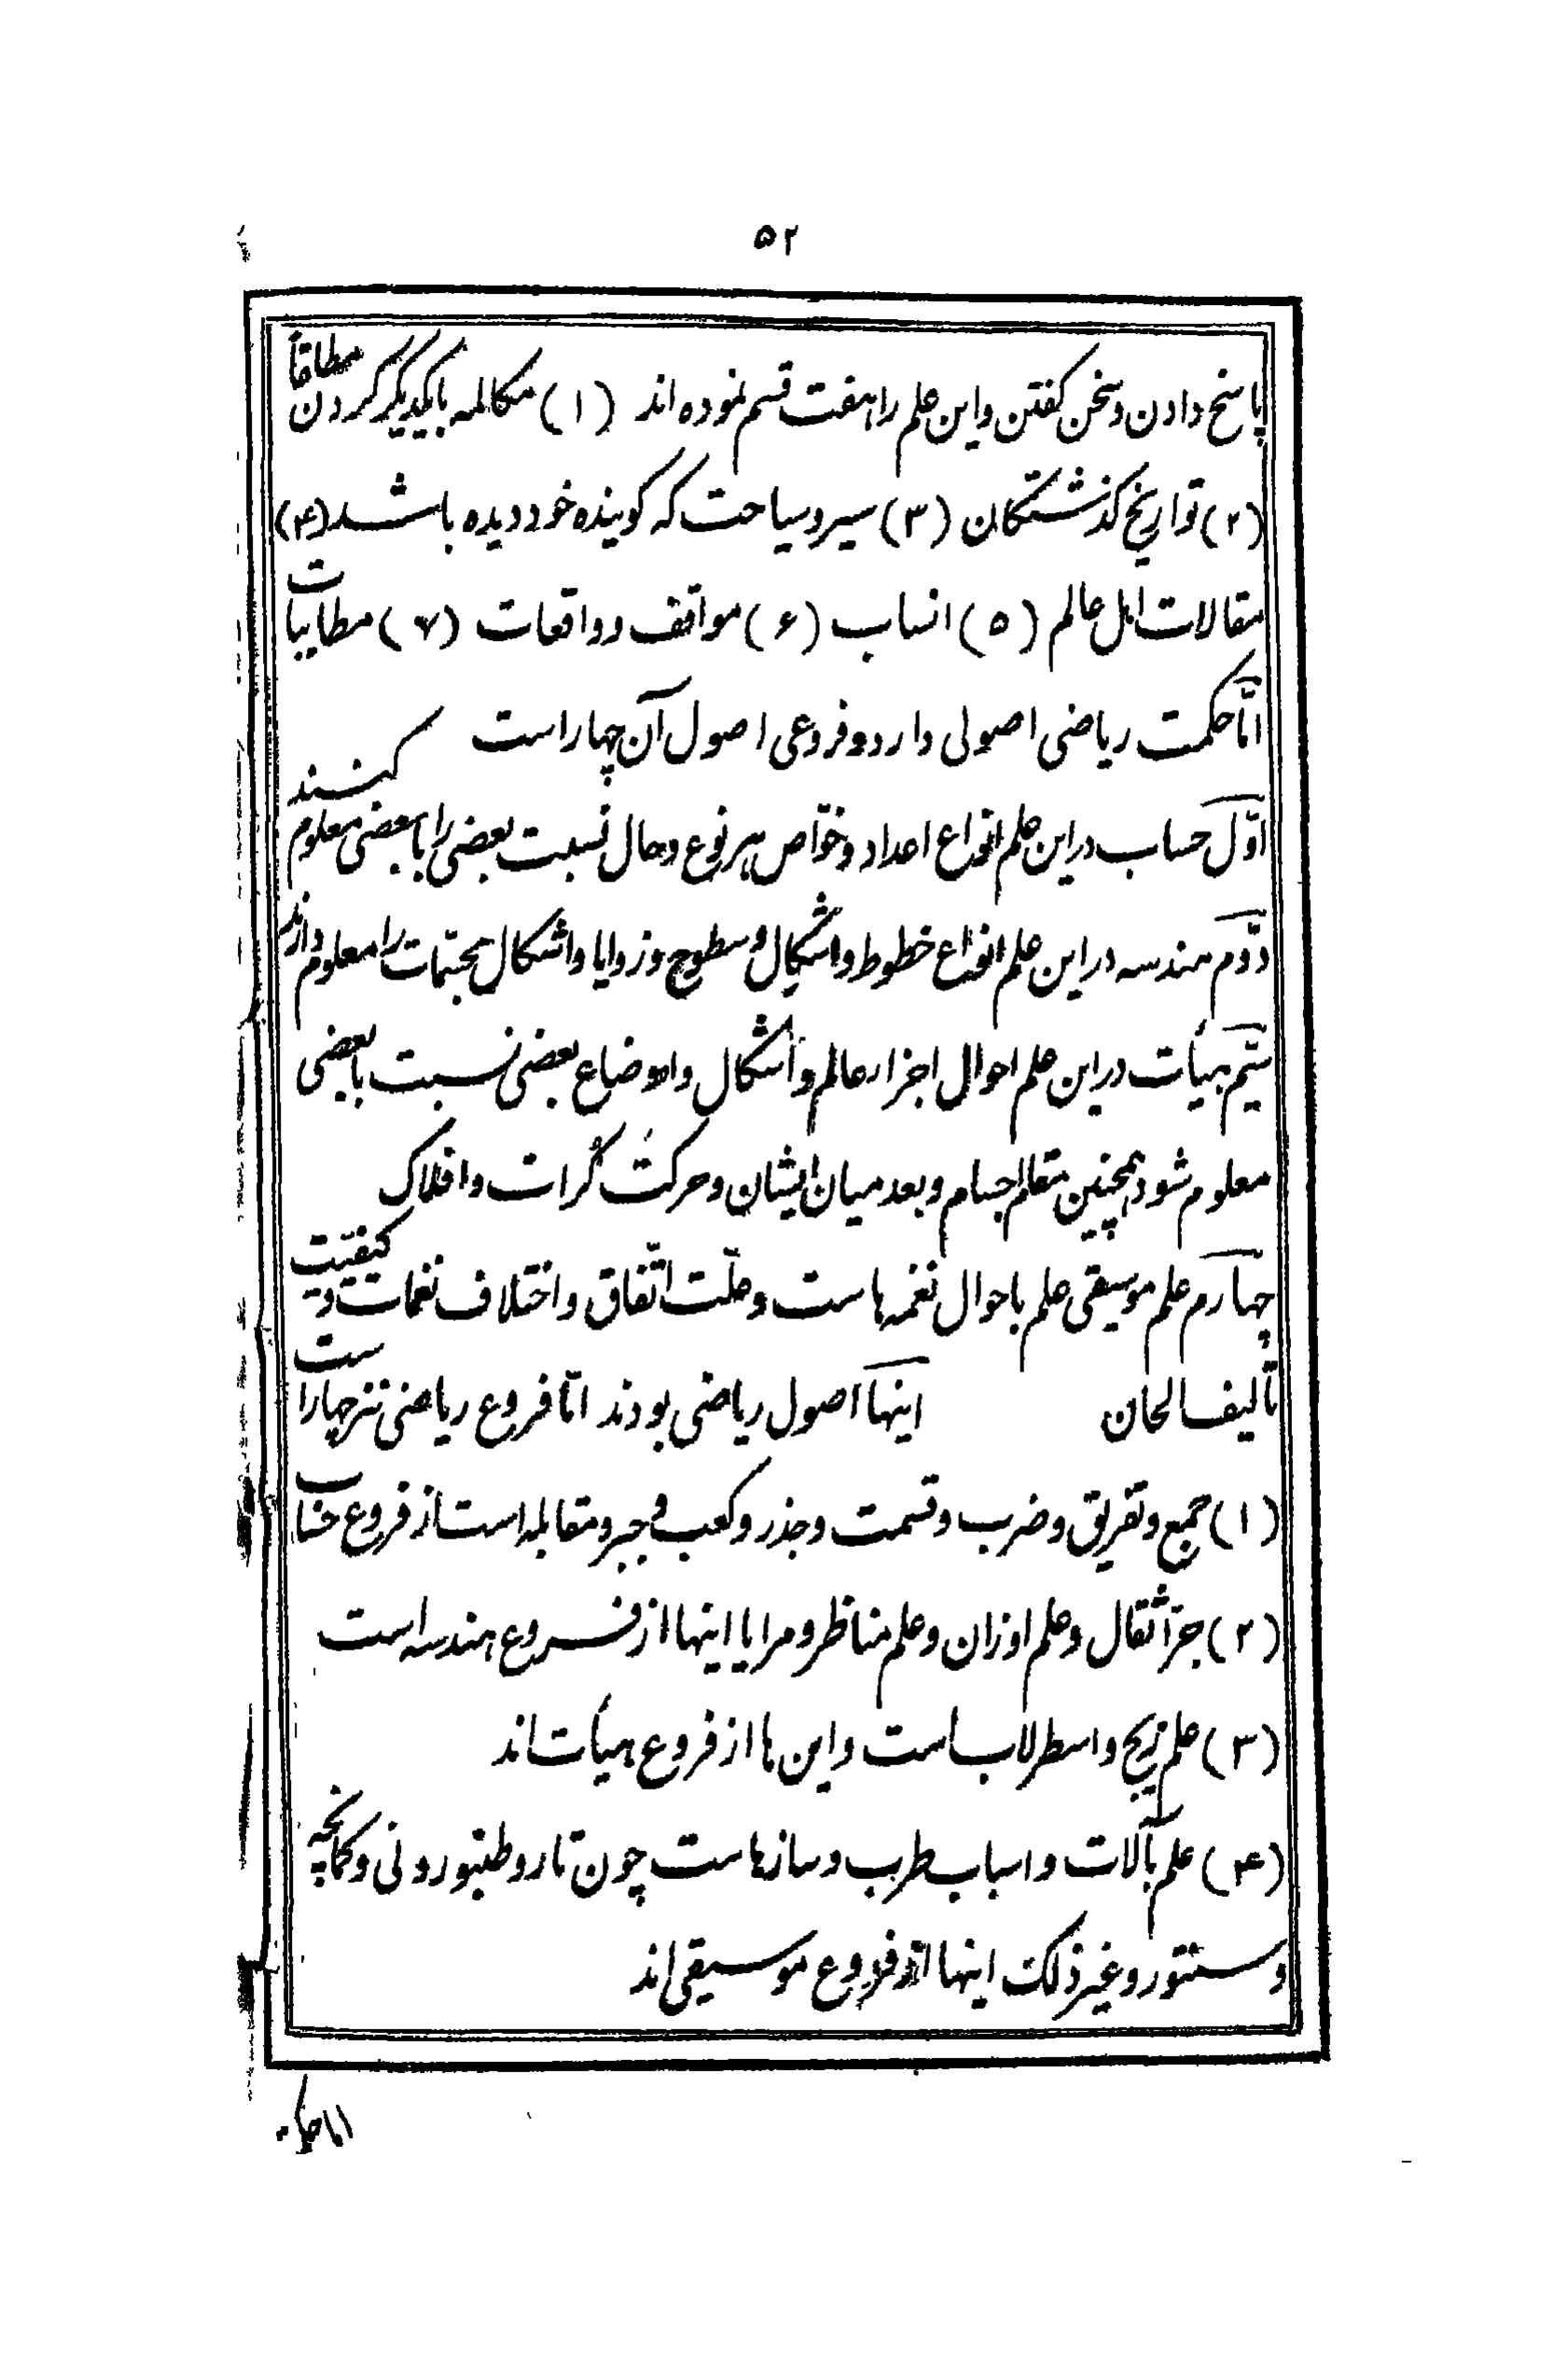 ۵۲
پاسخ دادن و سخن کفتن و این علم را هفت قسم نموده اند (۱) مکالمه با یکدیکر کردن مطلقاً
(۲) تواریخ کذشتکان (۳) سیر و سیاحت که کوینده خود دیده باشد (۴)
مقالات اهل عالم (۵) انساب (۶) مواقف و واقعات (۷) مطایبات
امّا حکمت ریاضی اصولی دارد و فروعی اصول آن چهار است
اوّل حساب در این علم انواع اعداد و خوّاص هر نوع و حال نسبت بعضی را با بعضی معلوم کنند
دوّم هندسه در این علم انواع خطوط و اشکال و سطوح و زوایا و اشکال مجسّمات را معلوم دارند
سیّم هیأت در این علم احوال اجزاء عالم و اشکال و اوضاع بعضی نسبت با بعضی
معلوم شود همچنین اجسام و بعد میان ایشان و حرکت کُرات و افلاک
چهارم علم موسیقی علم باحوال نغمه هاست و علّت اتّفاق و اختلاف نغمات و کیفیّت
تألیف الحان اینها اصول ریاضی بودند امّا فروع ریاضی نیز چهار است
(۱) جمع و تفریق و ضرب و قسمت و جذر و کعب و جبر و مقابله است از فروع حساب
(۲) جرّ اثقال و علم اوزان و علم مناظر و مرایا اینها از فروع هندسه است
(۳) علم زیج و اسطرلاب است و این ها از فروع هیأت اند
(۴) علم بآلات و اسباب طرب و سازهاست چون تار و طنبور و نی و کمانچه
و سنتور و غیر ذلک اینها از فروع موسیقی اند